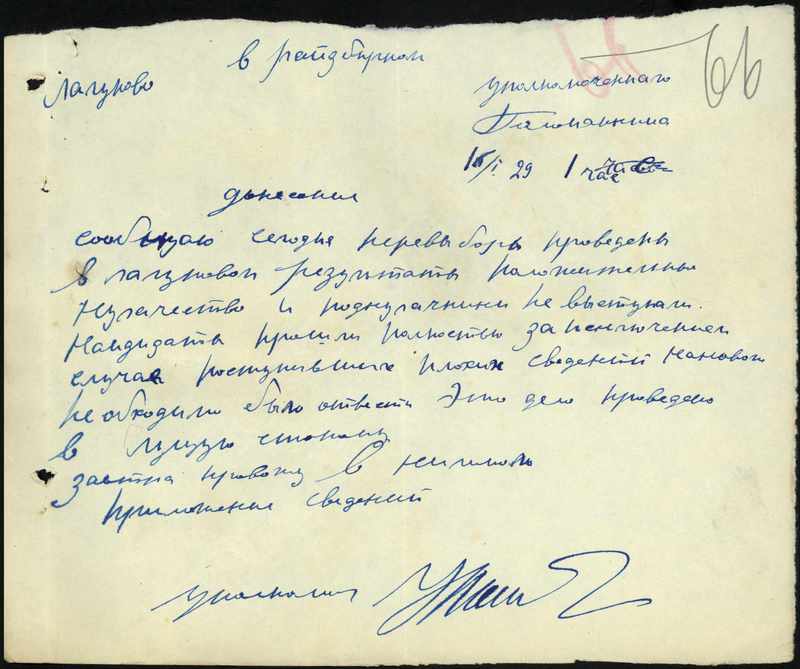 66
в райзбирком
Лагуново
уполномоченного
15/I 29 1 час
донесение
сообщаю сегодня перевыборы проведены
в Лагуновом результаты положительные
Кулачество и подкулачники не выступали.
Кандидаты прошли полностью за исключением
случая поступивших плохих сведений
необходимо было отвести Это дело проведено
в лучшую сторону
завтра провожу в
приложение сведений
уполномоч